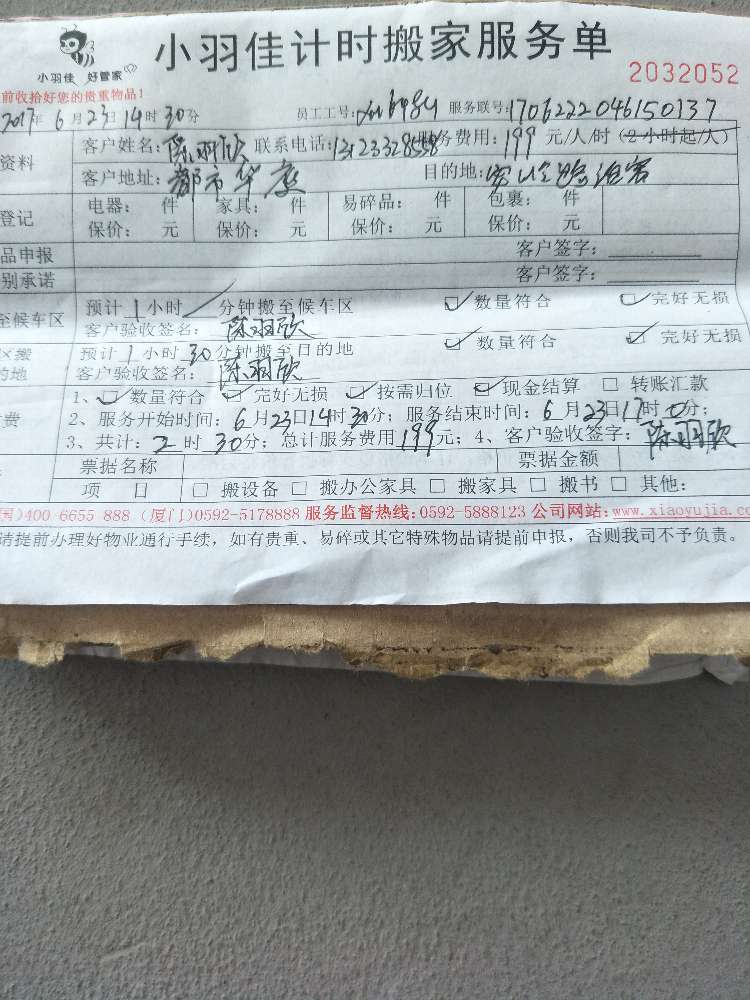 小羽佳计时搬家服务单
小羽佳 好管家
2032052
前收拾好您的贵重物品!
2017年6月23日14时30分 员工工号: 服务联号:1706222046150137
资料 客户姓名:陈羽欣 联系电话: 务费用:199元/人/时(2小时起/人)
客户地址:都市华庭 目的地:
登记 电器: 件 家具: 件 易碎品: 件 包裹: 件
保价: 元 保价: 元 保价: 元 保价: 元
品申报 客户签字:
别承诺 客户签字:
至候车区 预计1小时/分钟搬至候车区 ☑数量符合 ☑完好无损
客户验收签名:陈羽欣
区搬 预计1小时30分钟搬至目的地 ☑数量符合 ☑完好无损
的地 客户验收签名:陈羽欣
1、☑数量符合 ☑完好无损 ☑按需归位 ☑现金结算 □转账汇款
费 2、服务开始时间:6月23日14时30分;服务结束时间:6月23日17时0分;
3、共计:2时30分;总计服务费用199元;4、客户验收签字:陈羽欣
票据名称 票据金额
项 目 □搬设备 □搬办公家具 □搬家具 □搬书 □其他:
国)400 6655 888 (厦门)0592-5178888 服务监督热线:0592-5888123 公司网站:www.xiaoyujia.co
请提前办理好物业通行手续，如有贵重、易碎或其它特殊物品请提前申报，否则我司不予负责。